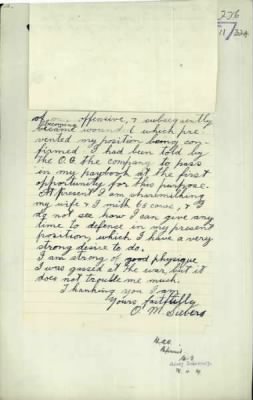 276
11/324
of our offensive, & subsequently
becoming
became wound & which pre
vented my position being con
firmed. I had been told by
the O.C. the company to pass
in my paybook at the first
opportunity for this purpose.
At present I am sharemilking
my wife & I milk 65 cows, & I
do not see how I can give any
time to defense in my present
position, which I have a very
strong desire to do.
I am strong of good physique
I was gassed at the war, but it
does not trouble me much.
I thanking you I am
Yours faithfully
O. M. Siebers